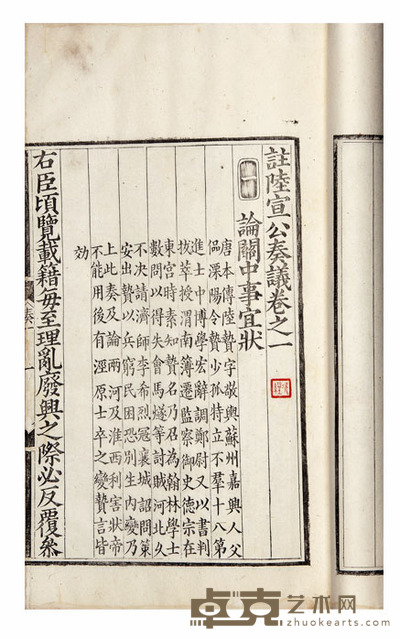 註陸宣公奏議卷之一
論關中事宜狀
唐本傳陸贄字敬輿蘇州嘉興人父
偘溧陽令贄少孤特立不羣十八第
進士中博學宏辭調鄭尉又以書判
拔萃授渭南簿遷監察御史德宗在
東宮時素知贄名乃召為翰林學士
數問以得失會馬燧等討賊河北久
不決請濟師李希烈冦襄城詔問策
安出贄以兵窮民困恐別生內變乃
上此奏及論兩河及淮西利害狀帝
不能用後有涇原士卒之變贄言皆
効
右臣頃覽載籍每至理亂廢興之際必反覆叅
奏一
卓克艺术网
www.zhuokearts.com